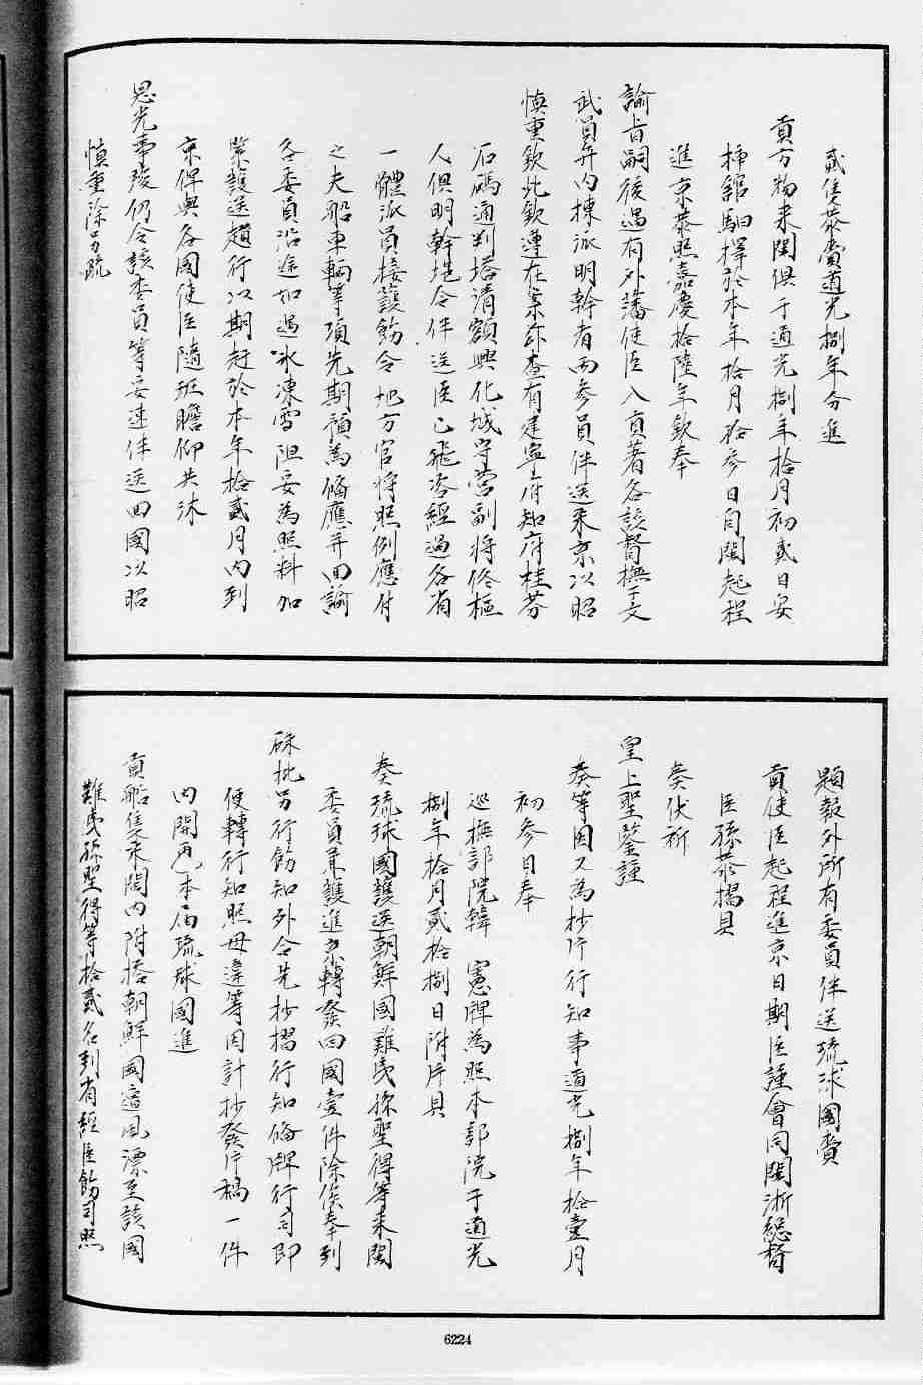 貳隻恭賫道光捌年分進
貢方物來閩俱于道光捌年拾月初貳日安
插舘馹擇於本年拾月拾參日自閩起程
進京恭照嘉慶拾陸年欽奉
諭旨嗣後遇有外藩使臣入貢著各該督撫于文
武員弁內揀派明幹者兩參員伴送來京以昭
慎重欽此欽遵在案茲查有建寧府知府桂芬
石碼通判塔清額興化城守營副將佟樞
人俱明幹堪令伴送臣已飛咨經過各省
一體派員接護飭令地方官將照例應付
之夫船車輛等項先期預為備應并囬諭
各委員沿途如遇冰凍雪阻妥為照料加
緊護送趲行以期赶於本年拾貳月內到
京俾與各國使臣隨班瞻仰共沐
恩光事竣仍令該委員等妥速伴送囬國以昭
慎重除另疏
題報外所有委員伴送琉球國賫
貢使臣起程進京日期臣謹會同閩浙總督
臣孫恭摺具
奏伏祈
皇上聖鑒謹
奏等因又為抄片行知事道光捌年拾壹月
初參日奉
巡撫部院韓　憲牌為照本部院于道光
捌年拾月貳拾捌日附片具
奏琉球國護送朝鮮國難夷孫聖得等來閩
委員兼護進京轉發囬國壹件除俟奉到
硃批另行飭知外合先抄摺行知備牌行司即
便轉行知照毋違等因計抄發片稿一件
內開再本届琉球國進
貢船隻來閩內附搭朝鮮國遭風漂至該國
難夷孫聖得等拾貳名到省經臣飭司照
6224